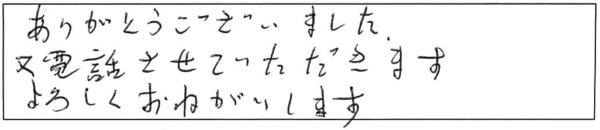 ありがとうございました.
又電話させていただきます
よろしくおねがいします